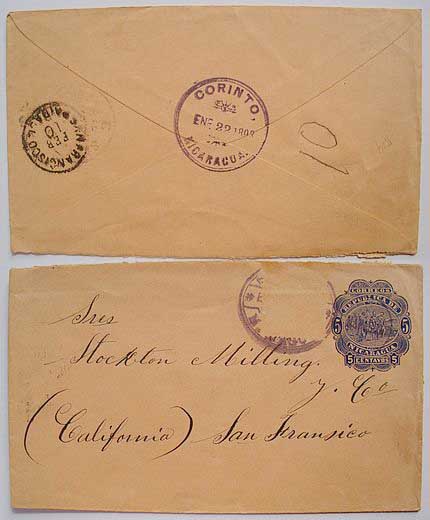 CORINTO.
ENE 22 189
NICARAGUA.
SAN FRANCISCO
FEB
10
10
CORREOS
REPUBLICA DE
5 5
NICARAGUA
5 CENTAVOS 5
Sres
Stockton Milling.
y. Co
(California) San Fransico